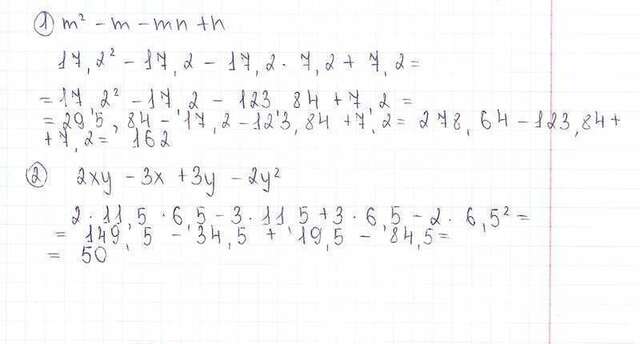 ① m² - m - mn + n
17,2² - 17,2 - 17,2 · 7,2 + 7,2 =
= 17,2² - 17,2 - 123,84 + 7,2 =
= 295,84 - 17,2 - 123,84 + 7,2 = 278,64 - 123,84 +
+ 7,2 = 162
② 2xy - 3x + 3y - 2y²
2 · 11,5 · 6,5 - 3 · 11,5 + 3 · 6,5 - 2 · 6,5² =
= 149,5 - 34,5 + 19,5 - 84,5 =
= 50